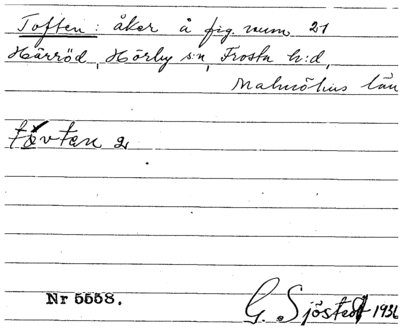 Toften: åker å fig. num 21
Härröd, Hörby s:n, Frosta h:d,
Malmöhus län
Nr 5558.
G. Sjöstedt 1936